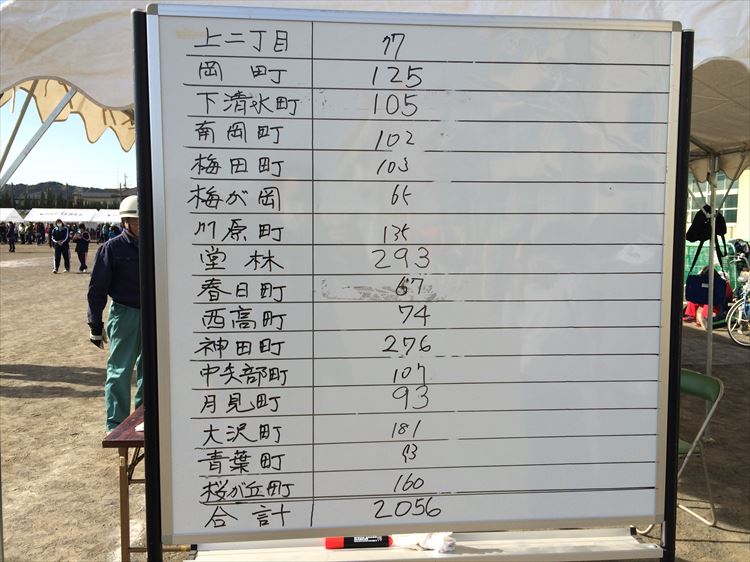 上二丁目 77
岡町 125
下清水町 105
南岡町 102
梅田町 103
梅が岡 65
川原町 135
堂林 293
春日町 67
西高町 74
神田町 276
中矢部町 107
月見町 93
大沢町 181
青葉町 93
桜が丘町 160
合計 2056